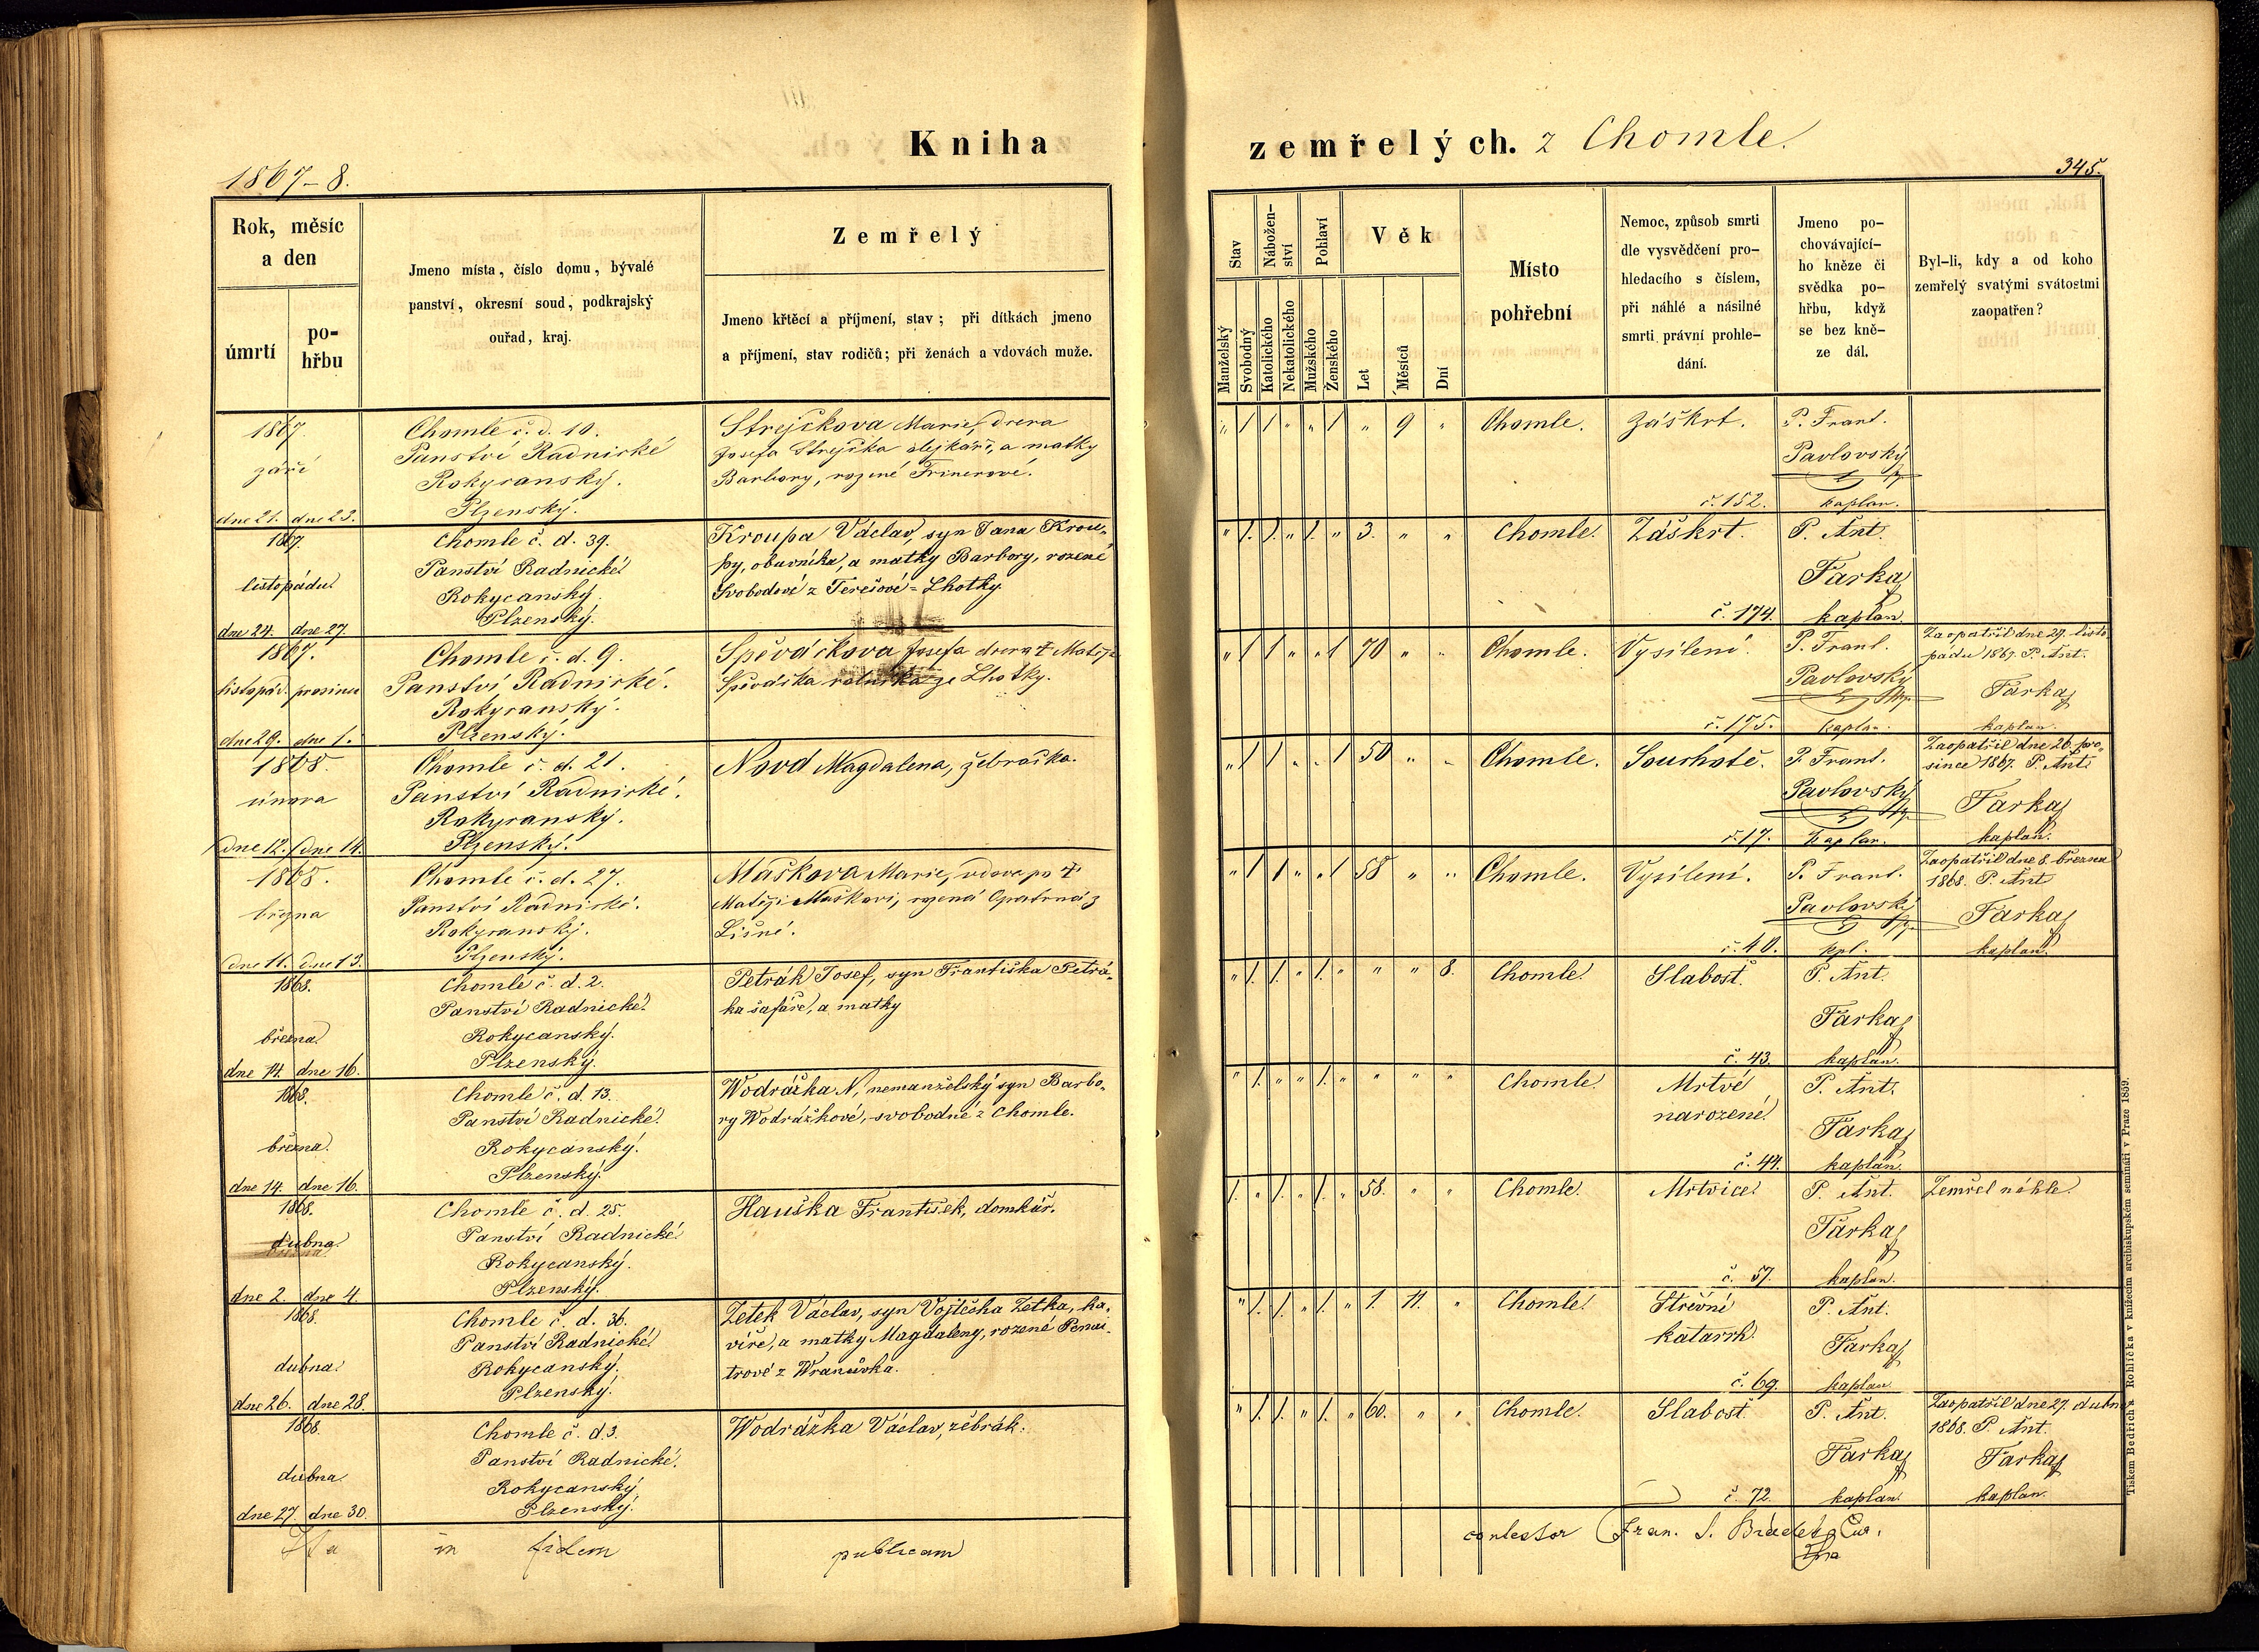 Kniha
zemřelých. z Chomle.
1867-8.
345.
Rok, měsíc
a den
úmrtí
po-
hřbu
Jmeno místa, číslo domu, bývalé
panství, okresní soud, podkrajský
ouřad, kraj.
Zemřelý
Jmeno křtěcí a příjmení, stav; při dítkách jmeno
a příjmení, stav rodičů; při ženách a vdovách muže.
Stav
Nábožen-
ství
Pohlaví
Věk
Manželský
Svobodný
Katolického
Nekatolického
Mužského
Ženského
Let
Měsíců
Dní
Místo
pohřební
Nemoc, způsob smrti
dle vysvědčení pro-
hledacího s číslem,
při náhlé a násilné
smrti právní prohle-
dání.
Jmeno po-
chovávající-
ho kněze či
svědka po-
hřbu, když
se bez kně-
ze dál.
Byl-li, kdy a od koho
zemřelý svatými svátostmi
zaopatřen?
1867.
září
dne 21. dne 23.
Chomle č. d. 10.
Panství Radnické
Rokycanský.
Plzenský.
Strejčkova Marie, dcera
Josefa Strejčka olejkáře, a matky
Barbory, rozené Frinerové.
" 1 1 " " 1 " 9 "
Chomle.
Záškrt.
č. 152.
P. Frant.
Pavlovský
kaplan.
1867.
listopádu
dne 24. dne 27.
Chomle č. d. 39.
Panství Radnické
Rokycanský.
Plzenský.
Kroupa Václav, syn Jana Krou-
py, obuvníka, a matky Barbory, rozené
Svobodové z Terešové-Lhotky.
" 1. 1. " 1. " 3. " "
Chomle.
Záškrt.
č. 174.
P. Ant.
Farka
kaplan.
1867.
listopád. prosince
dne 29. dne 1.
Chomle č. d. 9.
Panství Radnické.
Rokycanský.
Plzenský.
Spěváčkova Josefa dcera † Matěje
Spěváčka ze Lhotky.
" 1 1 " " 1 70 " "
Chomle.
Vysílení.
č. 175.
P. Frant.
Pavlovský
kaplan.
Zaopatřil dne 29. listo
pádu 1867. P. Ant.
Farka
kaplan.
1868.
února
dne 12. dne 14.
Chomle č. d. 21.
Panství Radnické.
Rokycanský.
Plzenský.
Nová Magdalena, žebračka.
" 1 1 " " 1 50 " "
Chomle.
Souchotě.
č. 17.
P. Frant.
Pavlovský
kaplan.
Zaopatřil dne 26. pro-
since 1867. P. Ant.
Farka
kaplan.
1868.
března
dne 11. dne 13.
Chomle č. d. 27.
Panství Radnické.
Rokycanský.
Plzenský.
Maškova Marie, vdova po †
Matěji Maškovi, rozená Opatrná z
Lišné.
" 1 1 " " 1 58 " "
Chomle.
Vysílení.
č. 40.
P. Frant.
Pavlovský
kpl.
Zaopatřil dne 8. března
1868. P. Ant
Farka
kaplan.
1868.
března.
dne 14. dne 16.
Chomle č. d. 2.
Panství Radnické.
Rokycanský.
Plzenský.
Petrák Josef, syn Františka Petrá-
ka šafáře, a matky
" 1. 1. " 1. " " " 8.
Chomle.
Slabost.
č. 43.
P. Ant.
Farka
kaplan.
1868.
března.
dne 14. dne 16.
Chomle č. d. 13.
Panství Radnické.
Rokycanský.
Plzenský.
Wodrážka N, nemanželský syn Barbo-
ry Wodrážkové, svobodné z Chomle.
" 1. " " 1. " " " "
Chomle.
Mrtvé
narozené.
č. 44.
P. Ant.
Farka
kaplan.
1868.
dubna.
dne 2. dne 4.
Chomle č. d. 25.
Panství Radnické.
Rokycanský.
Plzenský.
Hauška František, domkář.
1. " 1. " 1. " 58. " "
Chomle.
Mrtvice.
č. 57.
P. Ant.
Farka
kaplan.
Zemřel náhle.
1868.
dubna.
dne 26. dne 28.
Chomle č. d. 36.
Panství Radnické.
Rokycanský.
Plzenský.
Zetek Václav, syn Vojtěcha Zetka, ha-
víře, a matky Magdaleny, rozené
trové z Wranůvka.
" 1. 1. " 1. " 1. 11. "
Chomle.
Střevní
katarrh.
č. 69.
P. Ant.
Farka
kaplan.
1868.
dubna.
dne 27. dne 30.
Chomle č. d 3.
Panství Radnické.
Rokycanský.
Plzenský.
Wodrážka Václav, žebrák.
" 1. 1. " 1. " 60. " "
Chomle.
Slabost.
č. 72.
P. Ant.
Farka
kaplan.
Zaopatřil dne 27. dubna
1868. P. Ant.
Farka
kaplan.
Ita in fidem publicam
contestor Fran. S.
Tiskem Bedřicha Rohlíčka v knížecím arcibiskupském semináři v Praze 1859.